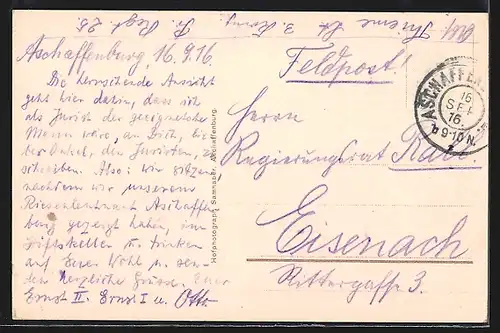 Abs. Thieme Lt. 3. Komp.
Pi. Regt 25.
Aschaffenburg, 16.9.16.
Die herrschende Ansicht
geht hier dahin, dass ich
als Jurist der geeignetste
Mann wäre, an Dich, lie-
ber Onkel, den Juristen, zu
schreiben. Also: wir sitzen
nachdem wir unserem
Aschaffen-
burg gezeigt haben, im
Stiftskeller u. trinken
auf Euer Wohl u. sen-
den herzliche Grüsse. Euer
Ernst II. Ernst I u. Otto.
Hofphotograph Samhaber, Aschaffenburg.
Feldpost!
ASCHAFFENB
16
SEP
16.
9-10 N.
2
Herrn
Regierungsrat
Eisenach
Rittergasse 3.